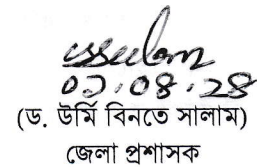 ০১.০৪.২৪
(ড. উর্মি বিনতে সালাম)
জেলা প্রশাসক